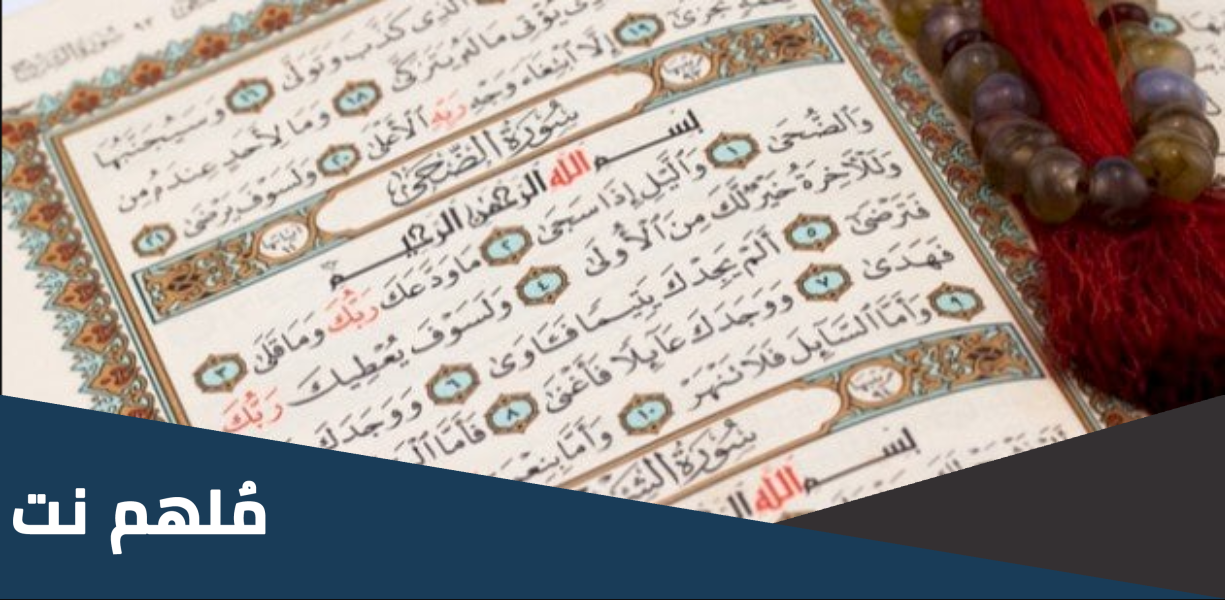 ٱلَّذِى كَذَّبَ وَتَوَلَّىٰ ١٦ وَسَيُجَنَّبُهَا
يُؤْتِى مَالَهُۥ يَتَزَكَّىٰ ١٨ وَمَا لِأَحَدٍ عِندَهُۥ مِن
تُجْزَىٰٓ ١٩ إِلَّا ٱبْتِغَآءَ وَجْهِ رَبِّهِ ٱلْأَعْلَىٰ ٢٠ وَلَسَوْفَ يَرْضَىٰ ٢١
سُورَةُ الضُّحَىٰ
بِسْمِ اللَّهِ الرَّحْمَٰنِ الرَّحِيمِ
وَٱلضُّحَىٰ ١ وَٱلَّيْلِ إِذَا سَجَىٰ ٢ مَا وَدَّعَكَ رَبُّكَ وَمَا قَلَىٰ ٣
وَلَلْءَاخِرَةُ خَيْرٌ لَّكَ مِنَ ٱلْأُولَىٰ ٤ وَلَسَوْفَ يُعْطِيكَ رَبُّكَ
فَتَرْضَىٰٓ ٥ أَلَمْ يَجِدْكَ يَتِيمًا فَـَٔاوَىٰ ٦ وَوَجَدَكَ
فَهَدَىٰ ٧ وَوَجَدَكَ عَآئِلًا فَأَغْنَىٰ ٨ فَأَمَّا
٩ وَأَمَّا ٱلسَّآئِلَ فَلَا تَنْهَرْ ١٠ وَأَمَّا بِنِعْمَةِ
سُورَةُ
بِسْمِ اللَّهِ
مُلهم نت